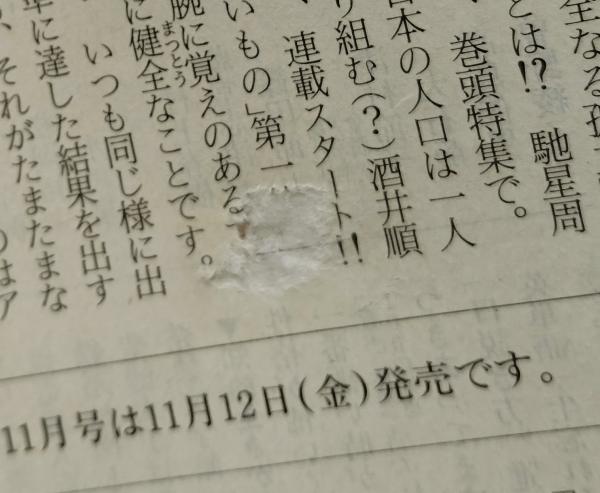 全なる
とは!? 馳星周
、巻頭特集で。
日本の人口は一人
り組む(?)酒井順
、連載スタート!!
いもの」第一
腕に覚えのある
に健全なことです。
まっとう
いつも同じ様に出
準に達した結果を出す
、それがたまたまな
のはア
11月号は11月12日(金)発売です。